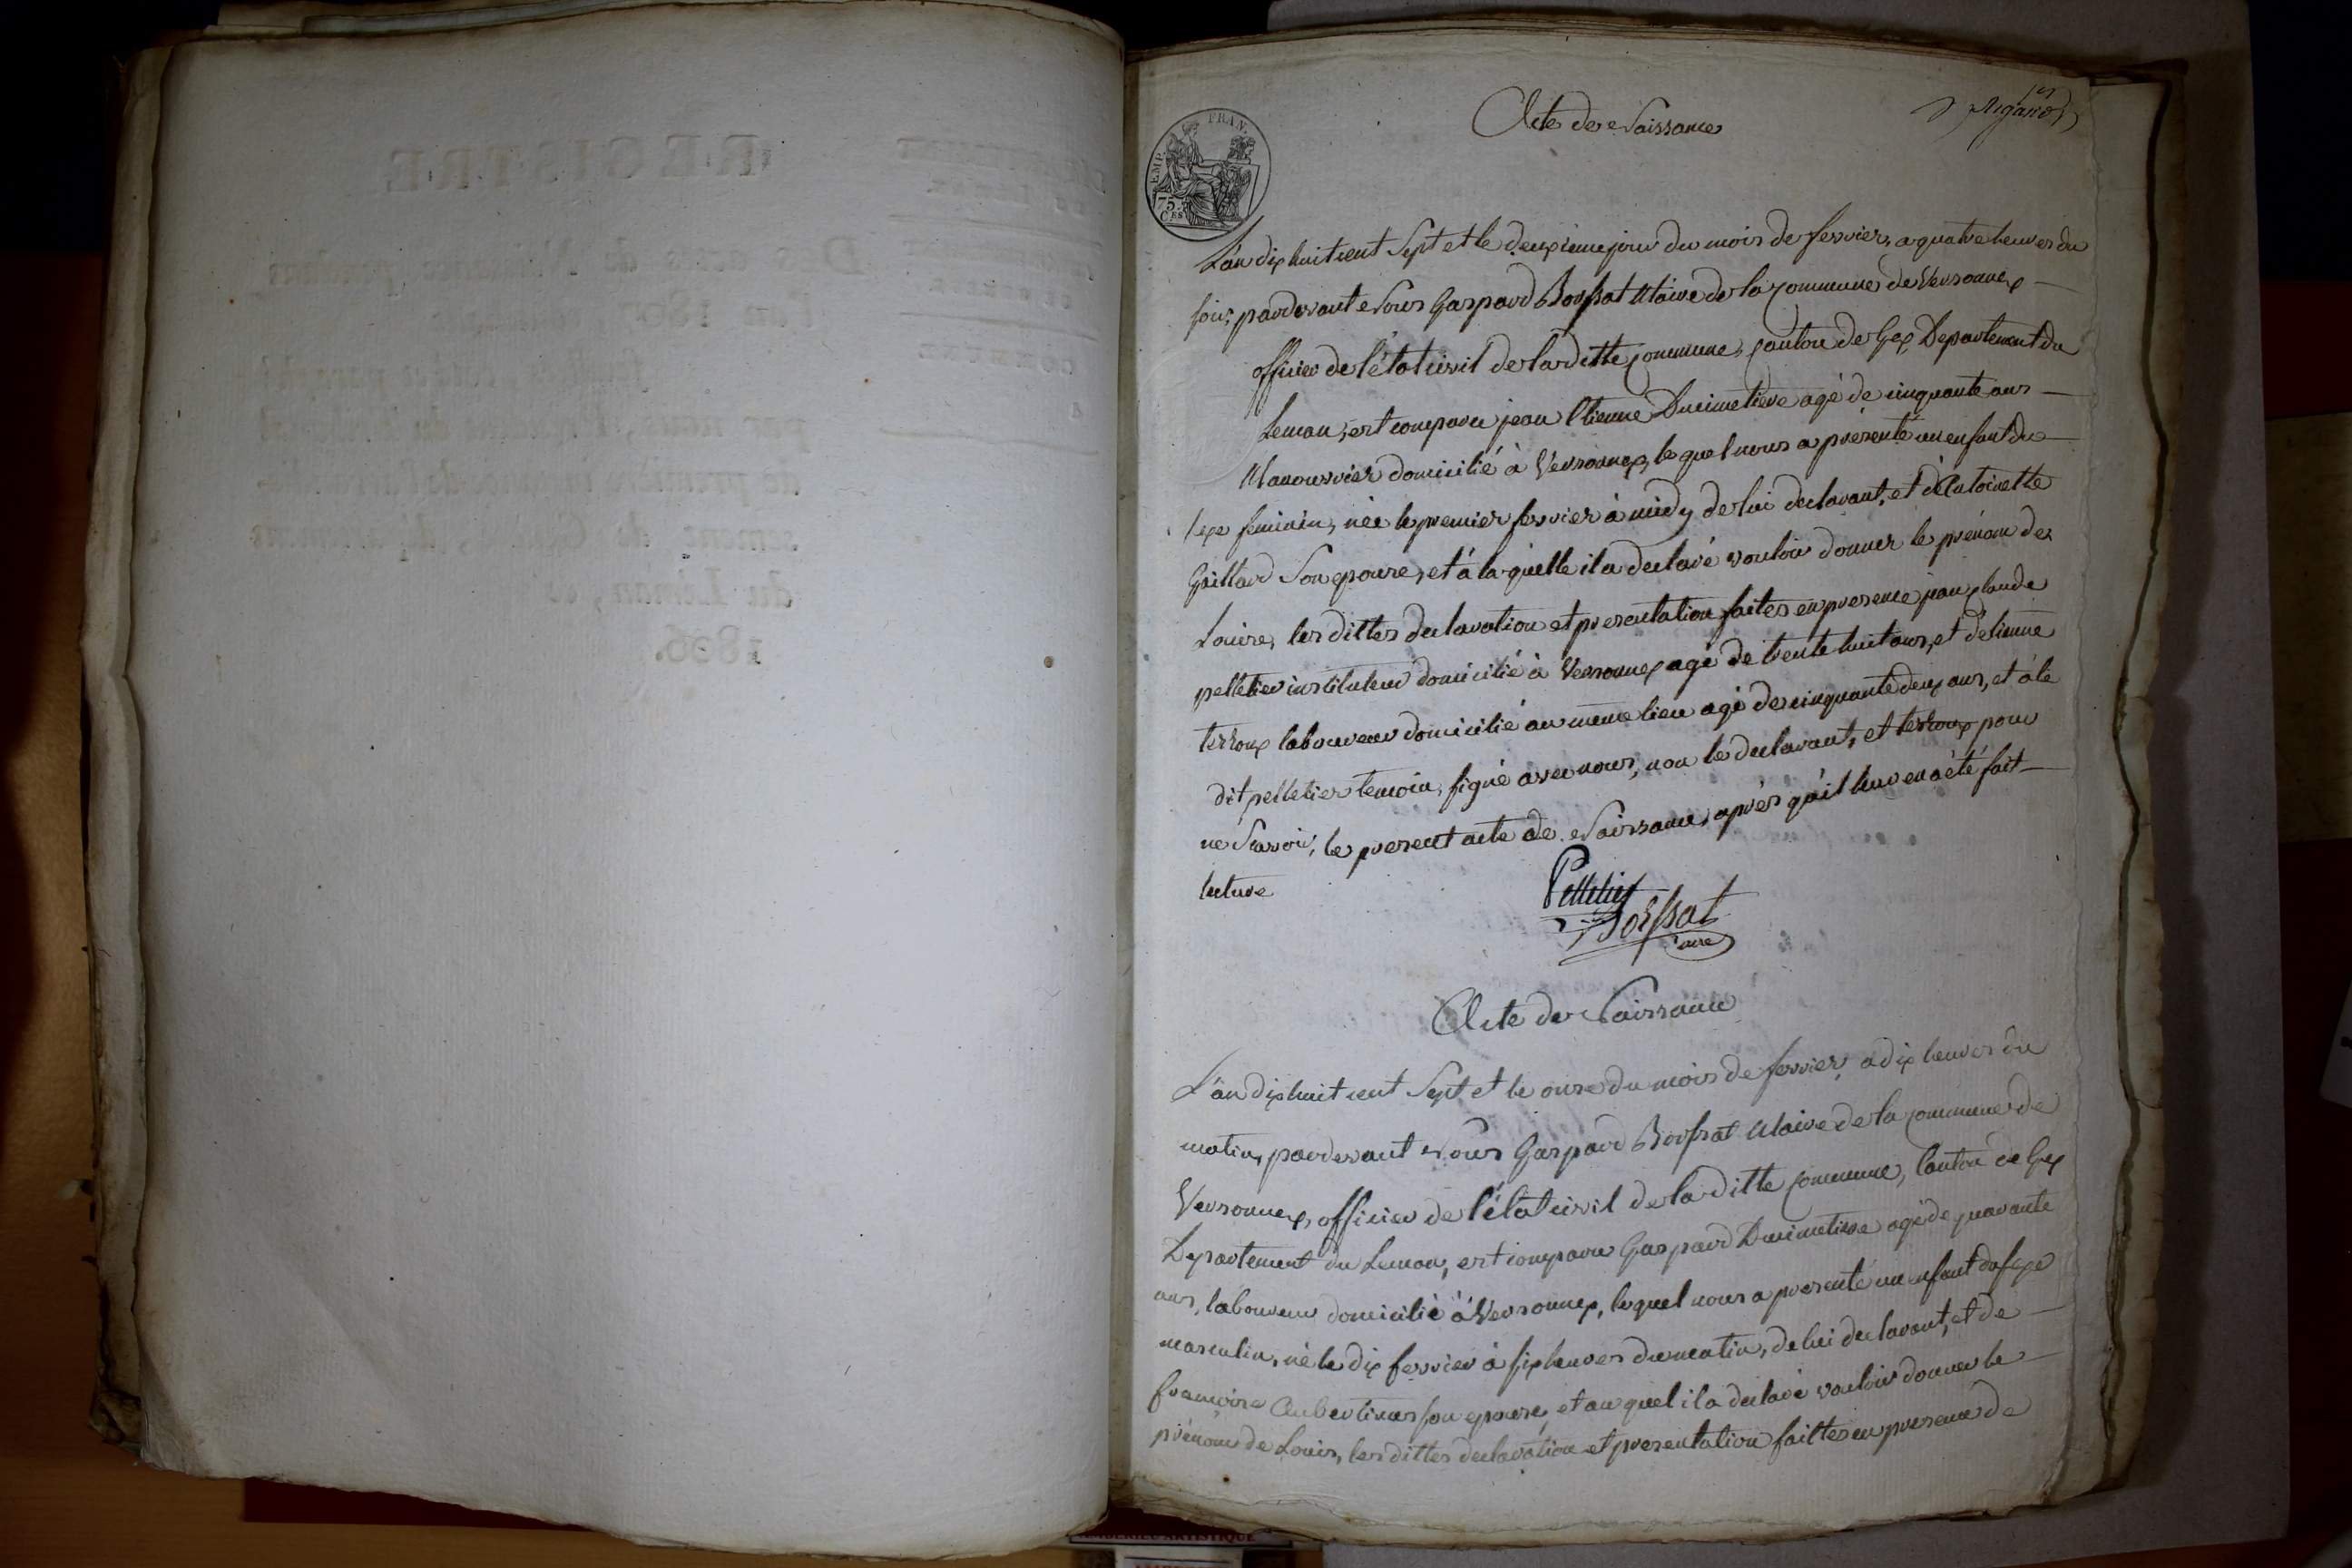 Acte de Naissance
1er
EMP. FRAN.
75
CES
L'an dix huit cent Sept et le deuxieme jour du mois de fevrier, a quatre heures du
soir, pardevant Nous Gaspard Boissat Maire de la commune de Versonnex
officier de l'état civil de la ditte commune, canton de Gex Departement du
Leman, est comparu jean Etienne Ducimetiere agé de cinquante ans
Manouvrier domicilié à Versonnex, le quel nous a présenté un enfant du
sexe feminin, née le premier fevrier à midy de lui declarant, et d'Antoinette
Gaillard Son epouse, et à la quelle il a declaré vouloir donner le prénom de
Louise, les dittes declaration et presentation faites en presence jean claude
pelletier instituteur domicilié à Versonnex agé de trente huit ans, et d'etienne
terroux laboureur domicilié au même lieu agé de cinquante deux ans, et à le
dit pelletier temoin, signé avec nous, non le declarant, et terroux pour
ne Savoir, le present acte de Naissance, après qu'il leur en a été fait
lecture
Pelletier
Boissat
maire
Acte de Naissance
L'an dix huit cent Sept et le onze du mois de fevrier, a dix heures du
matin, pardevant Nous Gaspard Boissat Maire de la commune de
Versonnex, officier de l'état civil de la ditte commune, Canton de Gex
Departement du Leman, est comparu Gaspard Ducimetiere agé de quarante
ans, laboureur domicilié à Versonnex, lequel nous a presenté un enfant du sexe
masculin, né le dix fevrier à six heures du matin, de lui declarant, et de
francoise son epouse, et au quel il a declaré vouloir donner le
prénom de Louis, les dittes declaration et presentation faittes en presence de